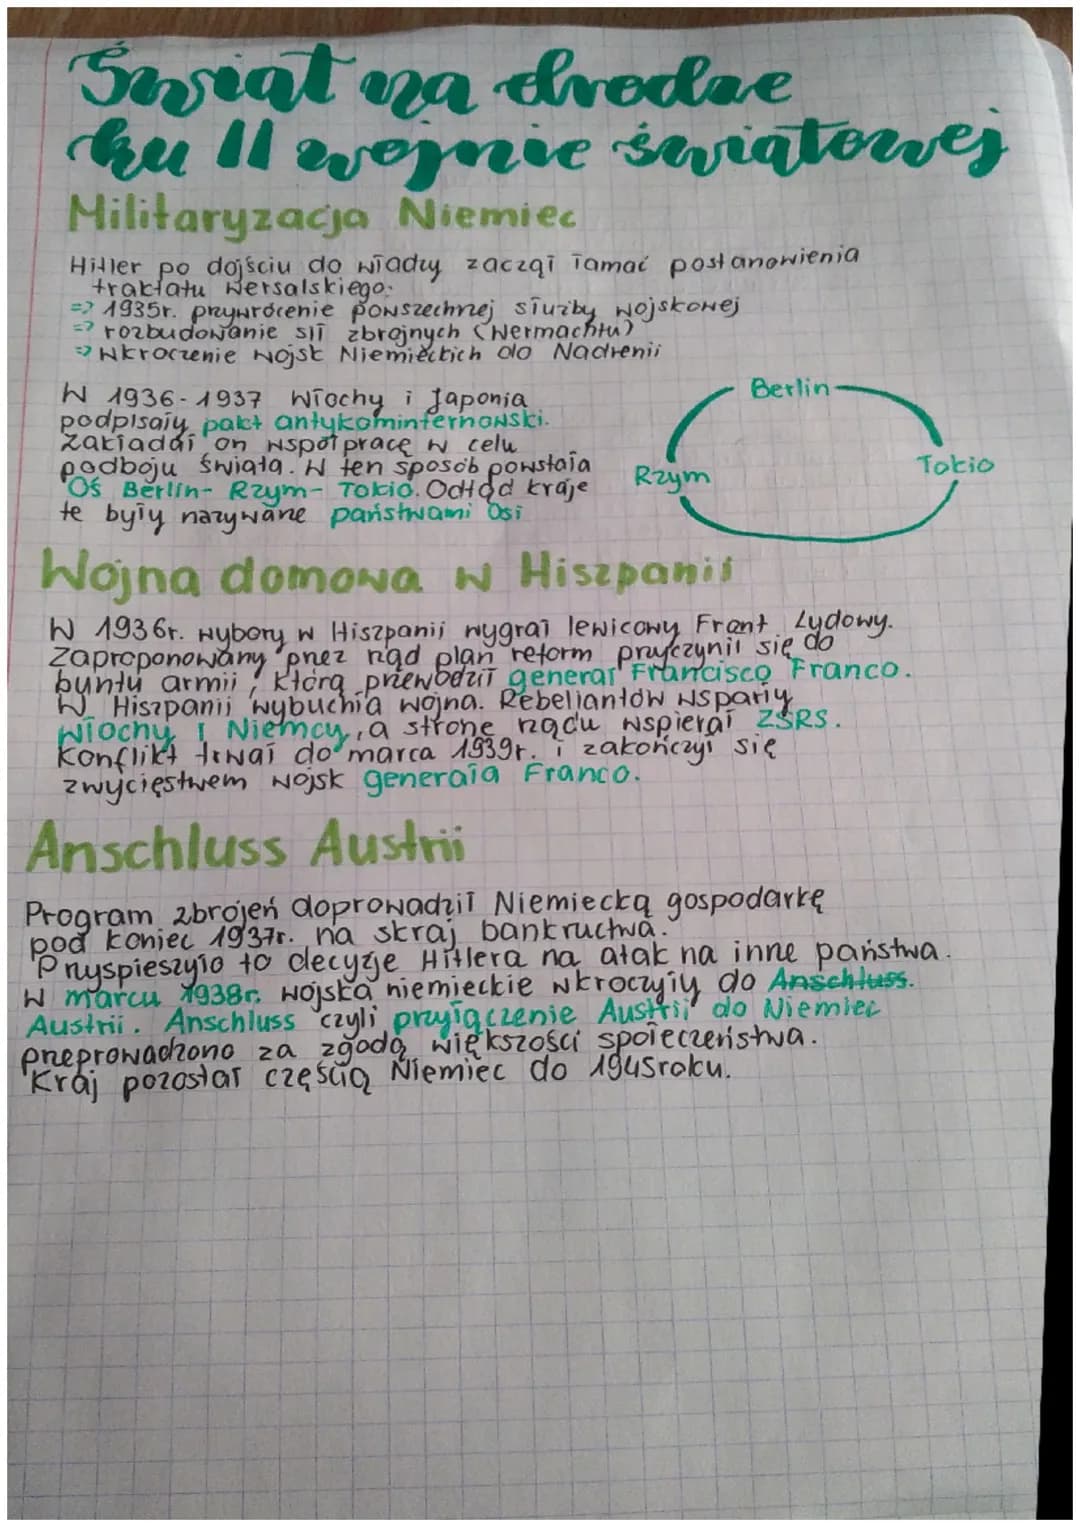 Świat na drodze
ku II wojnie światowej
Militaryzacja Niemiec
Hitler po dojściu do władzy zaczął łamać postanowienia
traktatu wersalskiego:
=> 1935r. przywrócenie powszechnej służby wojskowej
=> rozbudowanie sił zbrojnych (Wermachtu)
=> wkroczenie wojsk Niemieckich do Nadrenii
W 1936-1937 Włochy i Japonia
podpisały pakt antykominternowski.
Zakładał on współpracę w celu
podboju świata. W ten sposób powstała
Oś Berlin- Rzym- Tokio. Odtąd kraje
te były nazywane państwami Osi
Berlin
Rzym
Tokio
Wojna domowa w Hiszpanii
W 1936r. wybory w Hiszpanii wygrał lewicowy Front Ludowy.
Zaproponowany przez rząd plan reform przyczynił się do
buntu armii, którą przewodził generał Francisco Franco.
W Hiszpanii wybuchła wojna. Rebeliantów wsparły
Włochy i Niemcy, a stronę rządu wspierał ZSRS.
Konflikt trwał do marca 1939r. i zakończył się
zwycięstwem wojsk generała Franco.
Anschluss Austrii
Program zbrojeń doprowadził Niemiecką gospodarkę
pod koniec 1937r. na skraj bankructwa.
Przyspieszyło to decyzje Hitlera na atak na inne państwa.
W marcu 1938r. wojska niemieckie wkroczyły do Anschluss.
Austrii. Anschluss czyli przyłączenie Austrii do Niemiec
przeprowadzono za zgodą większości społeczeństwa.
Kraj pozostał częścią Niemiec do 1945roku.